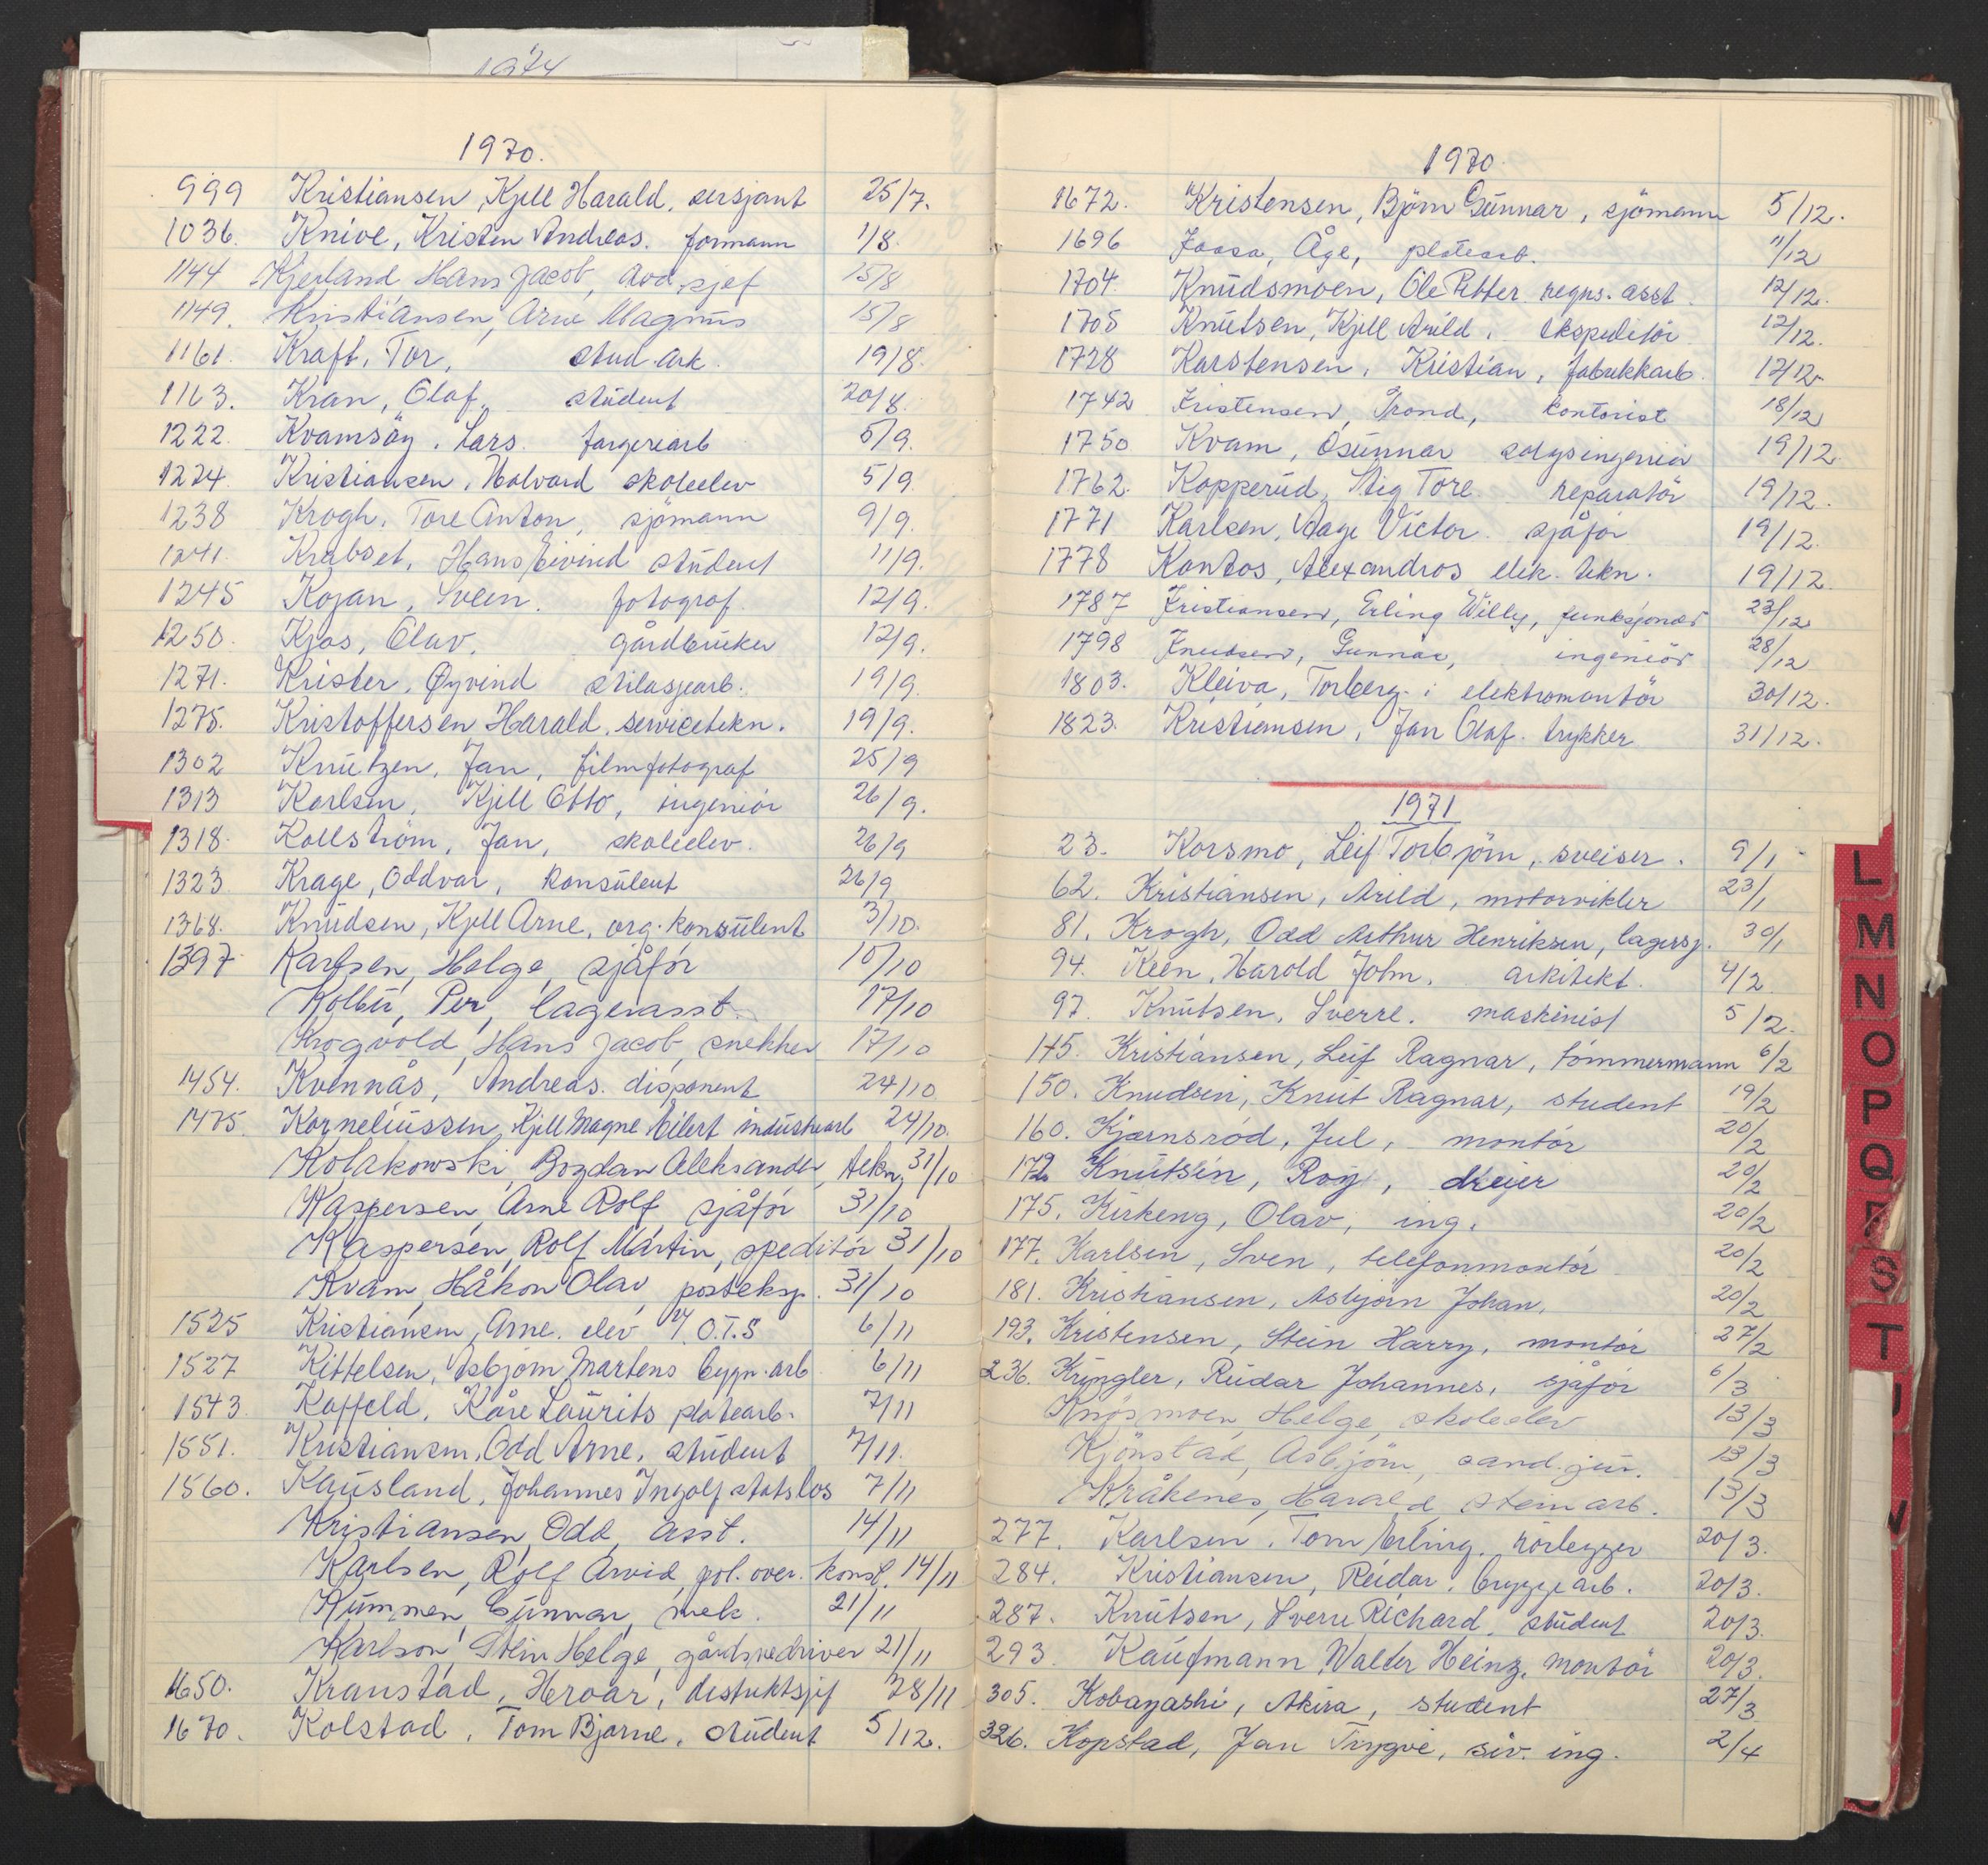 1974
1970.
999 Kristiansen, Kjell Harald, sersjant 25/7.
1036. Knive, Kristen Andreas. formann 1/8.
1144 Kjerland Hans Jacob, avd.sjef 15/8
1149. Kristiansen, Arne Magnus 15/8
1161. Kraft, Tor, stud. ark. 19/8.
1163. Kran, Olaf, student 20/8.
1222. Kvamsöy, Lars. fargeriarb 5/9.
1224. Kristiansen, Halvard skoleelev 5/9.
1238 Krogh, Tore Anton, sjömann 9/9.
1241. Krabset, Hans Eivind student 11/9.
1245 Kojan, Svein. fotograf. 12/9.
1250. Kjos, Olav, gårdbruker 12/9.
1271. Krister, Øyvind stilasjearb. 19/9.
1275. Kristoffersen Harald, servicetekn. 19/9.
1302 Knutzen, Jan, filmfotograf 25/9
1313 Karlsen, Kjell Otto, ingeniör 26/9.
1318. Kollström, Jan, skoleelev. 26/9
1323 Krage, Oddvar, konsulent 26/9
1368. Knudsen, Kjell Arne, org. konsulent 3/10.
1397 Karlsen, Helge, sjåför 10/10
Kolbu, Per, lagerasst. 17/10
Krogvold, Hans Jacob, snekker 17/10
1454. Kvennås, Andreas. disponent 24/10
1475. Korneliussen, Kjell Magne Eilert industriarb 24/10.
Kolakowski, Bogdan Aleksander, tekn. 31/10
Kaspersen, Arne Rolf, sjåför 31/10
Kaspersen, Rolf Martin, speditör 31/10
Kvam, Håkon Olav, posteksp. 31/10
1525 Kristiansen, Arne. elev v/ O.T.S 6/11
1527 Kittelsen, Asbjörn Martens bygn.arb 6/11
1543. Kaffeld, Kåre Laurits platearb. 7/11
1551. Kristiansen, Odd Arne, student 7/11.
1560. Kausland, Johannes Ingolf statslos 7/11
Kristiansen, Odd, asst. 14/11
Karlsen, Rolf Arvid, pol. over. konst. 14/11
Kummen, Gunnar, mek. 21/11
Karlson, Stein Helge, gårdsbedriver 21/11
1650. Kranstad, Hroar, distriktsjef 28/11
1670. Kolstad, Tom Bjarne, student 5/12.
1970.
1672. Kristensen, Björn Gunnar, sjömann 5/12.
1696 Kaasa, Åge, platearb. 11/12
1704. Knudsmoen, Ole Petter regns. asst. 12/12.
1705 Knutsen, Kjell Arild, ekspeditör 12/12.
1728 Karstensen, Kristian, fabrikkarb. 12/12.
1742 Kristensen, Trond, kontorist 18/12
1750 Kvam, Gunnar salgsingeniör 19/12.
1762. Kopperud, Stig Tore reparatör 19/12.
1771 Karlsen, Aage Victor sjåför 19/12.
1778 Kontos, Alexandros elek. tekn. 19/12.
1787 Kristiansen, Erling Willy, funksjonær 23/12
1798 Knudsen, Gunnar, ingeniör 28/12
1803. Kleiva, Torberg. i elektromontör 30/12.
1823. Kristiansen, Jan Olaf. trykker 31/12.
1971
23. Korsmo, Leif Torbjörn, sveiser. 9/1
62. Kristiansen, Arild, motorvikler 23/1
81. Krogh, Odd Arthur Henriksen, lagersj. 30/1
94. Keen, Harold John. arkitekt. 4/2
97. Knutsen, Sverre. maskinist 5/2.
145. Kristiansen, Leif Ragnar, tömmermann 6/2
150. Knudsen, Knut Ragnar, student 19/2
160. Kjærnsröd, Jul, montör 20/2
172 Knutsen, Roy, dreier 20/2
175. Kirkeng, Olav, ing. 20/2
177. Karlsen, Sven, telefonmontör 20/2
181. Kristiansen, Asbjörn Johan, 20/2
193. Kristensen, Stein Harry, montör 27/2
236. Kringler, Reidar Johannes, sjåför 6/3
Knösmoen, Helge, skoleelev 13/3
Kjönstad, Asbjörn, cand. jur. 13/3
Kråkenes, Harald, steinarb. 13/3
277. Karlsen, Tom Erling, rörlegger 20/3.
284. Kristiansen, Reidar, bryggearb. 20/3.
287. Knutsen, Sverre Richard, student 20/3.
293. Kaufmann, Walter Heinz, montör 20/3.
305. Kobayashi, Akira, student 27/3
326. Kopstad, Jan Trygve, siv. ing. 2/4
L
M
N
O
P
Q
R
S
T
U
V